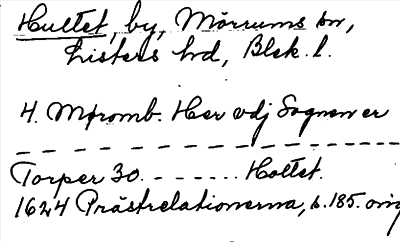 Hultet, by, Mörrums sn,
Listers hd, Blek. l.
4. Mpromb. Her vdj Sognen er
Torper 30. - - - - - - - Holtet.
1624 Prästrelationerna, s. 185. orig